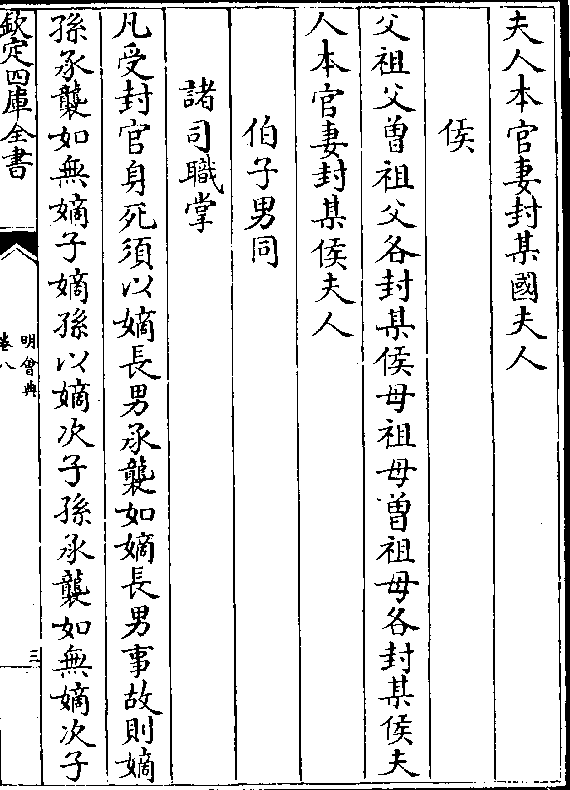 夫人本官妻封某國夫人
侯
父祖父曽祖父各封某侯母祖母曽祖母各封某侯夫
人本官妻封某侯夫人
伯子男同
諸司職掌
凡受封官身死須以嫡長男承襲如嫡長男事故則嫡
孫承襲如無嫡子嫡孫以嫡次子孫承襲如無嫡次子
欽定四庫全書
明會典
卷八
三